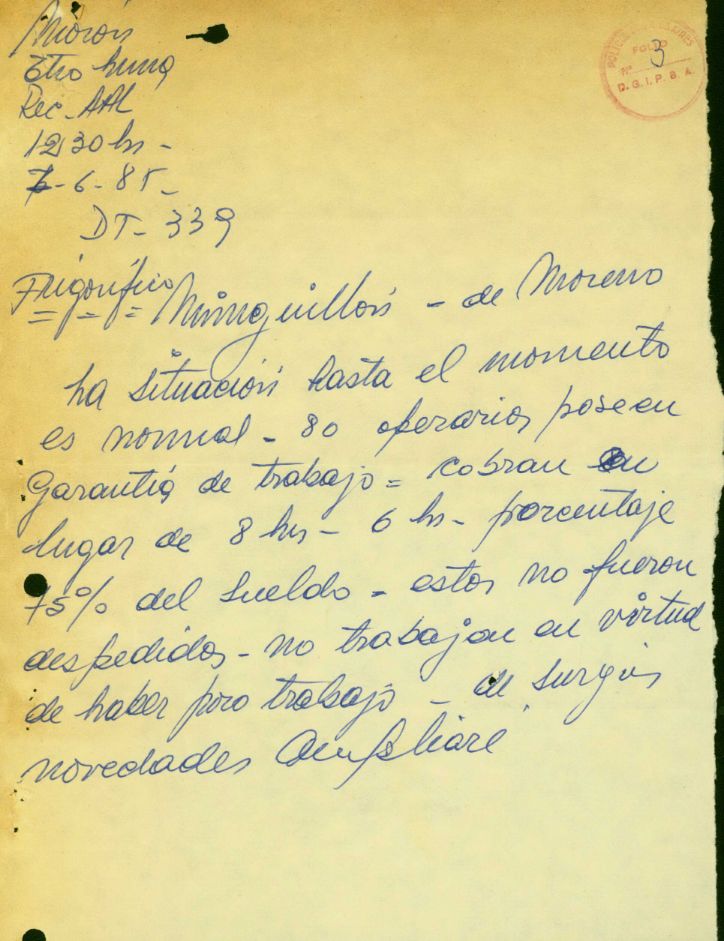 Morón
Rec. AAL
1230 hs -
7-6-85-
DT- 339
POLICIA
FOLIO
Nº 3
D.G.I.P.B.A.
Frigorífico Minguillón - de Moreno
La situación hasta el momento
es normal - 80 operarios poseen
Garantía de trabajo = cobran en
lugar de 8 hs - 6 hs - porcentaje
75% del sueldo - estos no fueron
despedidos - no trabajan en virtud
de haber poco trabajo - de surgir
novedades ampliaré